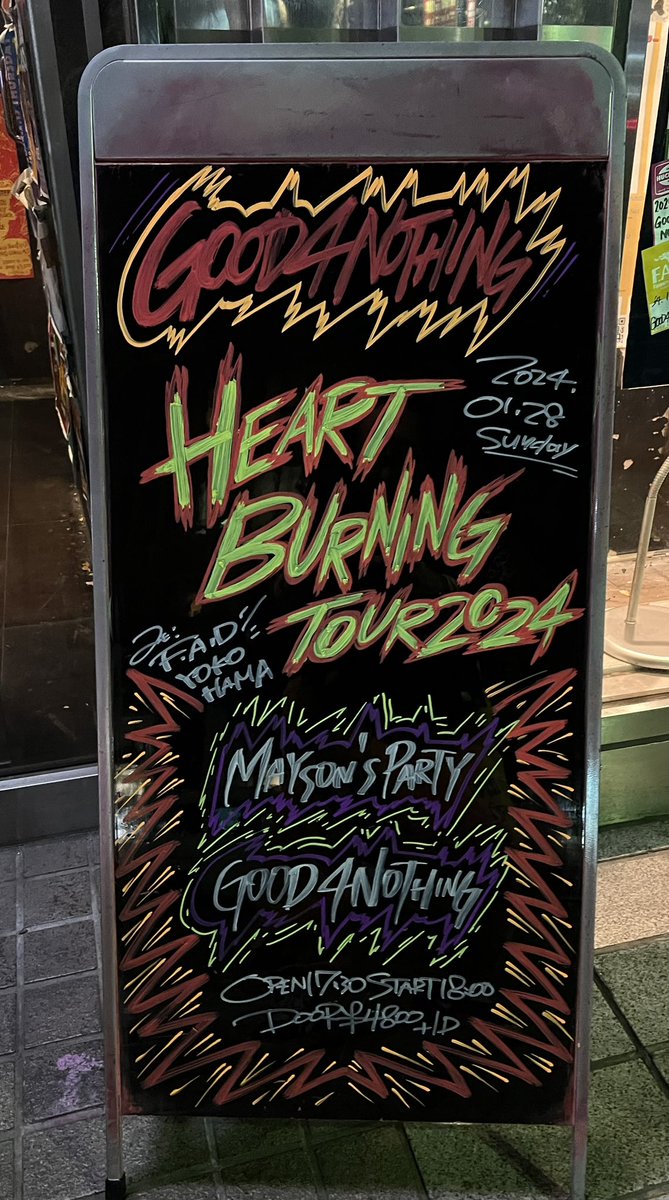 GOOD4NOTHING
2024.
01.28
Sunday
HEART
BURNING
TOUR2024
F.A.D
YOKO
HAMA
MAYSON'S PARTY
GOOD4NOTHING
OPEN17:30 START18:00
DOOR ¥4800+1D